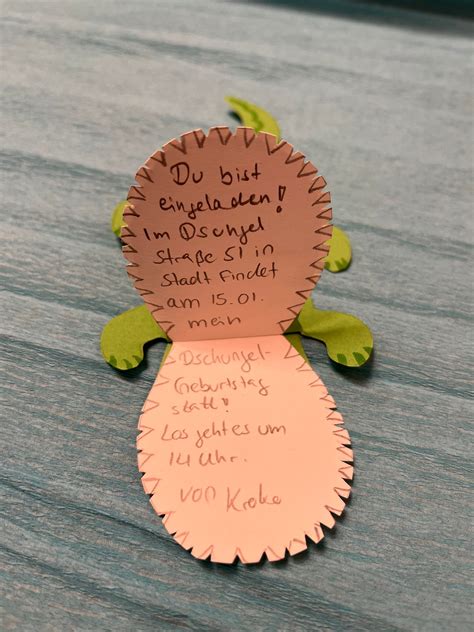 Du bist
eingeladen!
Im Dschgel
Straße 51 in
Stadt findet
am 15.01.
mein
Dschungel-
Geburtstag
statt!
Los geht es um
14 Uhr.
von Kroko